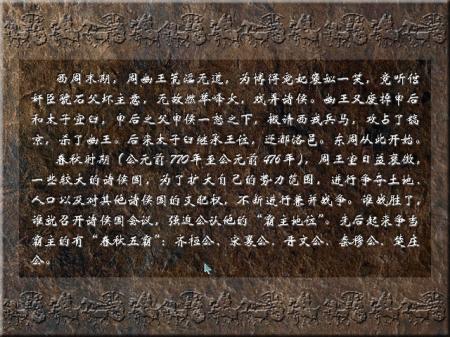 西周末期，周幽王荒淫无道，为博得宠妃褒姒一笑，竟听信
奸臣虢石父坏主意，无故燃举烽火，戏弄诸侯。幽王又废掉申后
和太子宜臼，申后之父申侯一怒之下，邀请西戎兵马，攻占了镐
京，杀了幽王。后来太子臼继承王位，迁都洛邑。东周从此开始。
春秋时期（公元前770年至公元前476年），周王室日益衰微，
一些较大的诸侯国，为了扩大自己的势力范围，进行争夺土地、
人口以及对其他诸侯国的支配权，不断进行兼并战争。谁战胜了，
谁就召开诸侯国会议，强迫公认他的“霸主地位”。先后起来争当
霸主的有“春秋五霸”：齐桓公、宋襄公、晋文公、秦穆公、楚庄
公。